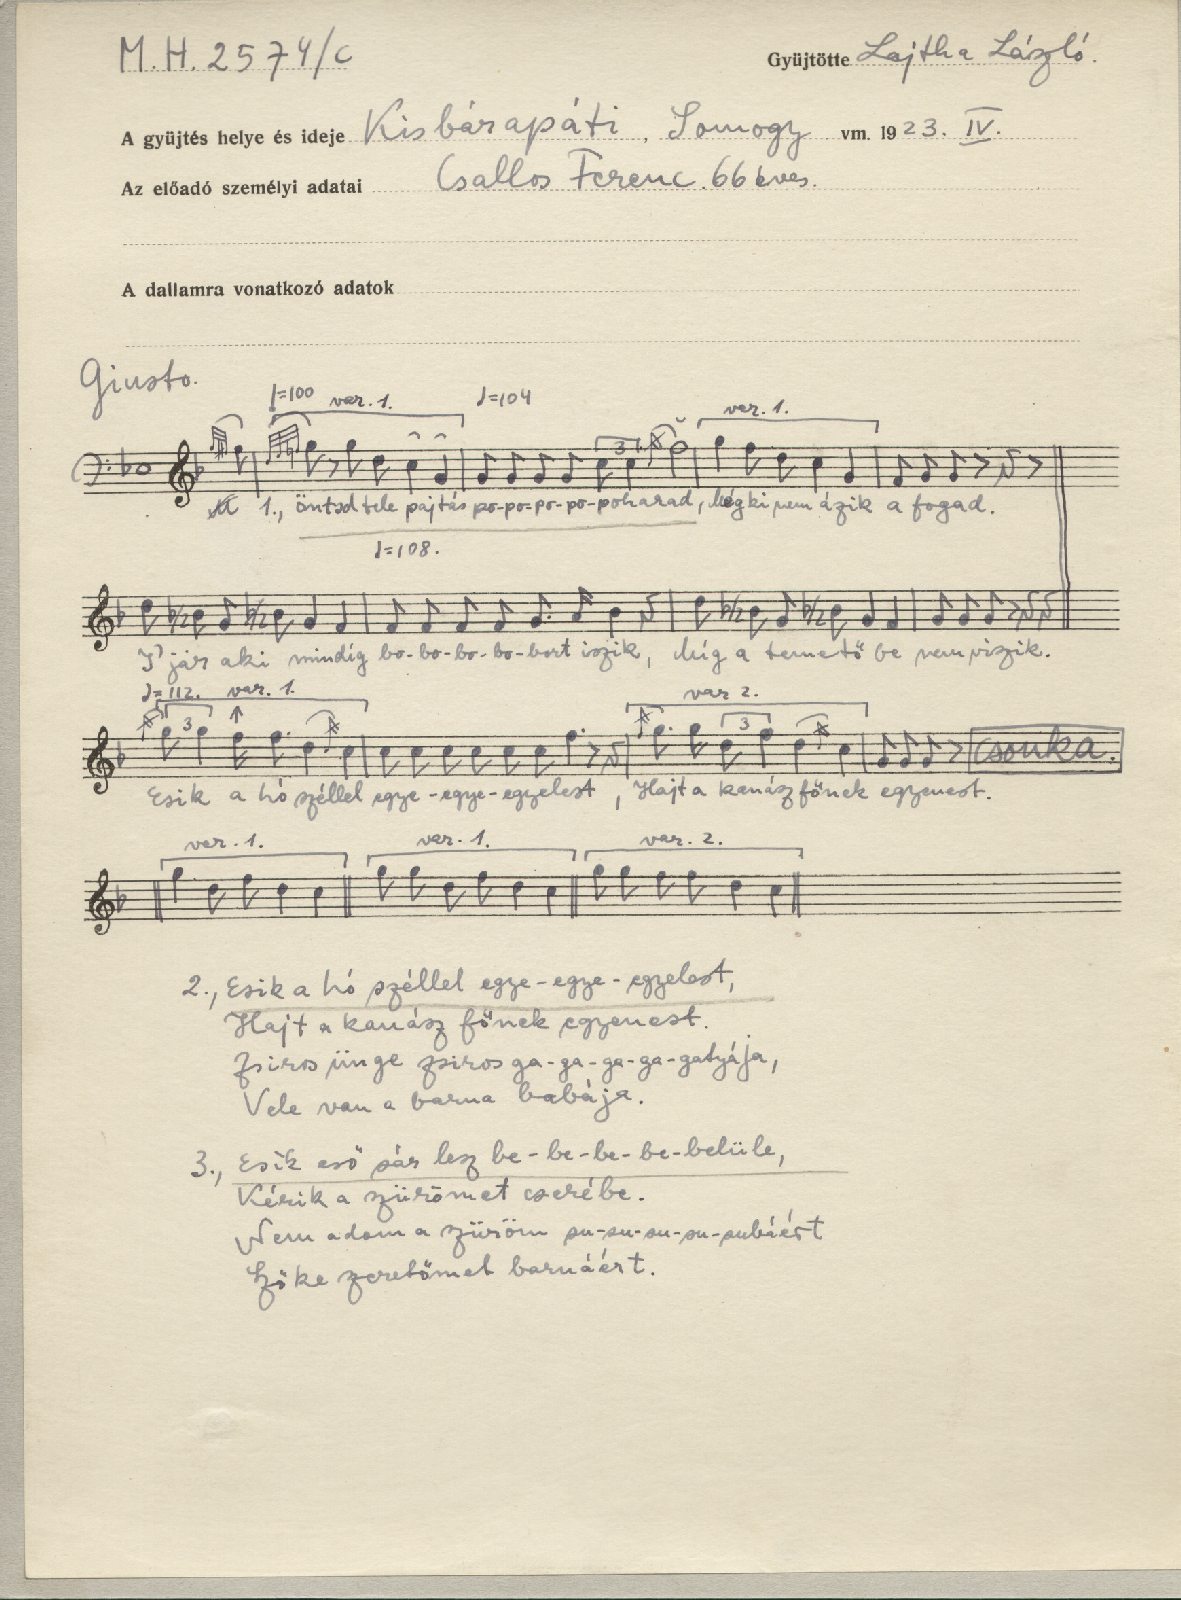 M.H. 2574/c
Gyüjtötte Lajtha László.
A gyüjtés helye és ideje Kisbárapáti, Somogy vm. 1923. IV.
Az előadó személyi adatai Csallos Ferenc. 66 éves.
A dallamra vonatkozó adatok
Giusto.
♩=100 var. 1. ♩=104 var. 1.
3
1., öntsd tele pajtás po-po-po-po-poharad, Még ki nem ázik a fogad.
♩=108.
Jól jár aki mindíg bo-bo-bo-bo-bort iszik, Míg a temető be nem vizik.
♩=112. var. 1. var 2.
3 3
Csonka.
Esik a hó széllel egye-egye-egyelest, Hajt a kanász főnek egyenest.
var. 1. var. 1. var. 2.
2., Esik a hó széllel egye-egye-egyelest,
Hajt a kanász főnek egyenest.
Zsiros ünge zsiros ga-ga-ga-ga-gatyája,
Vele van a barna babája.
3., Esik eső sár lesz be-be-be-be-belüle,
Kérik a szürömet cserébe.
Nem adom a szüröm su-su-su-su-subáért
Szőke szeretőmet barnáért.